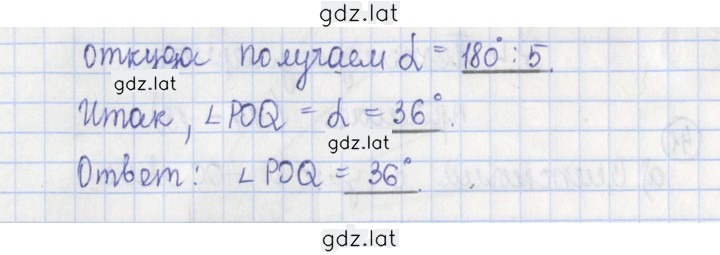 gdz.lat
откуда получаем α = 180° : 5.
gdz.lat
Итак, ∠POQ = α = 36°.
Ответ: ∠POQ = 36°.
gdz.lat